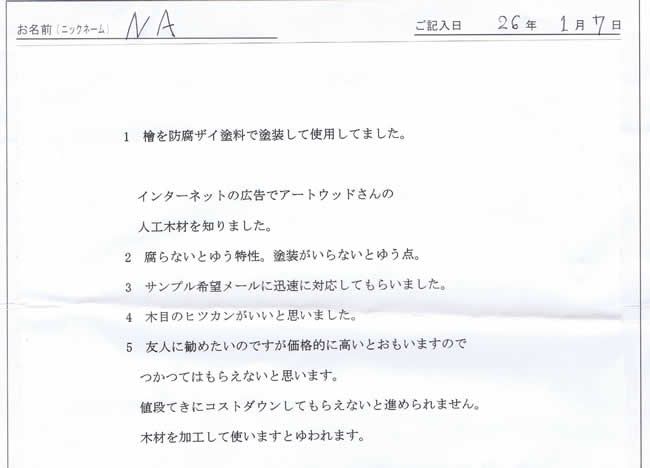 お名前（ニックネーム） NA ご記入日 26年 1月7日
1 檜を防腐ザイ塗料で塗装して使用してました。
インターネットの広告でアートウッドさんの
人工木材を知りました。
2 腐らないとゆう特性。塗装がいらないとゆう点。
3 サンプル希望メールに迅速に対応してもらいました。
4 木目のヒツカンがいいと思いました。
5 友人に勧めたいのですが価格的に高いとおもいますので
つかつてはもらえないと思います。
値段てきにコストダウンしてもらえないと進められません。
木材を加工して使いますとゆわれます。